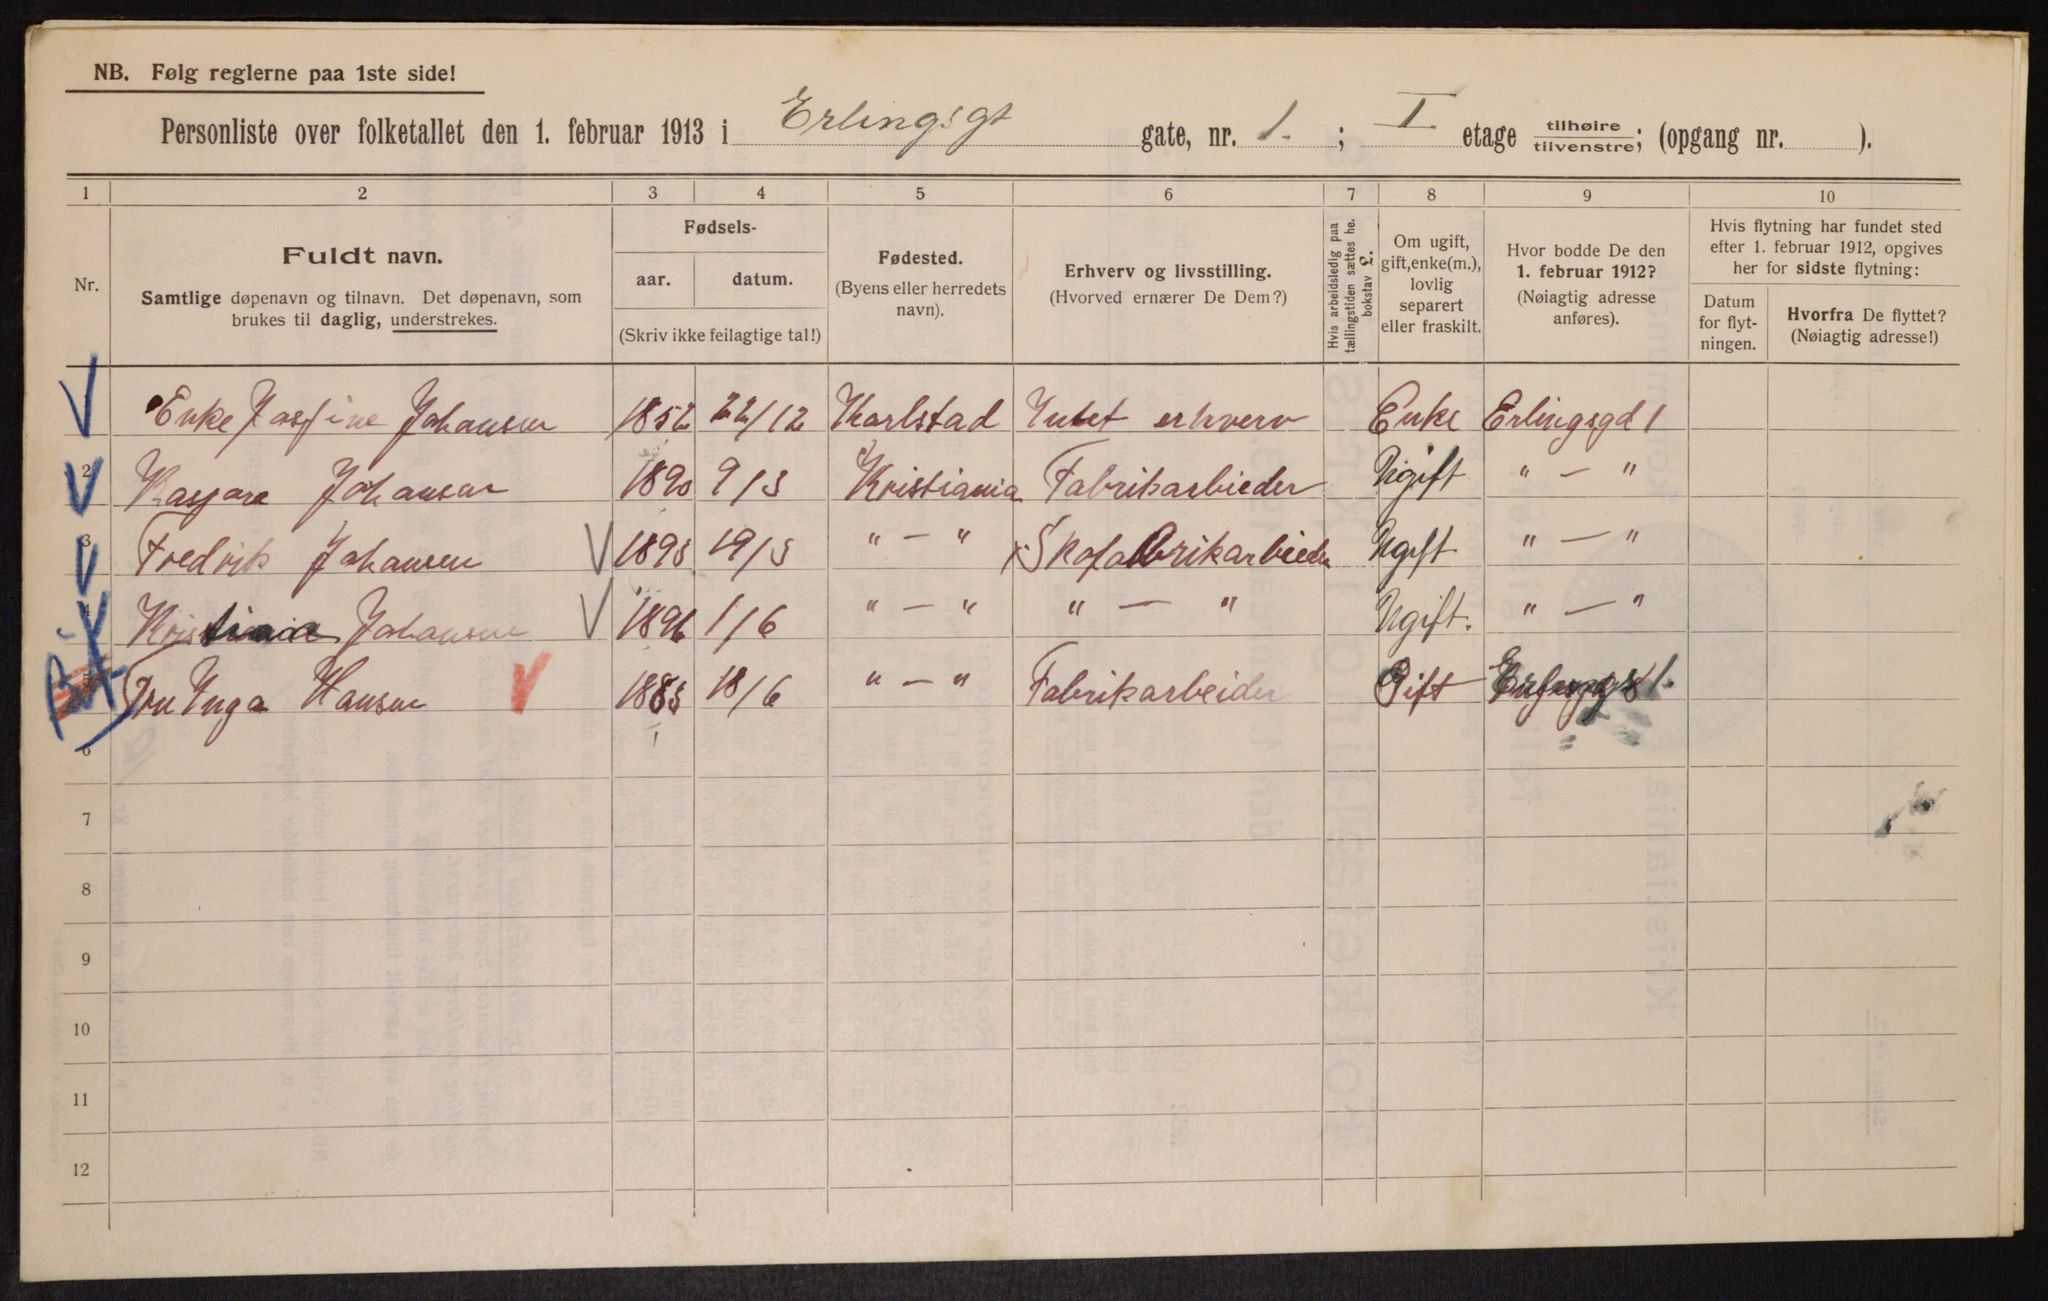 NB. Følg reglerne paa 1ste side!
Personliste over folketallet den 1. februar 1913 i Erlingsgt gate, nr. 1. ; I etage tilhøire tilvenstre; (opgang nr. ).
1 2 3 4 5 6 7 8 9 10
Nr.
Fuldt navn.
Samtlige døpenavn og tilnavn. Det døpenavn, som
brukes til daglig, understrekes.
Fødsels-
aar. datum.
(Skriv ikke feilagtige tal!)
Fødested.
(Byens eller herredets
navn).
Erhverv og livsstilling.
(Hvorved ernærer De Dem?)
Hvis arbeidsledig paa
tællingstiden sættes he.
bokstav L.
Om ugift,
gift, enke(m.),
lovlig
separert
eller fraskilt.
Hvor bodde De den
1. februar 1912?
(Nøiagtig adresse
anføres).
Hvis flytning har fundet sted
efter 1. februar 1912, opgives
her for sidste flytning:
Datum
for flyt-
ningen.
Hvorfra De flyttet?
(Nøiagtig adresse!)
Enke Josefine Johansen 1852 22/12 Karlstad Intet erhverv Enke Erlingsgd 1
2 Kaspara Johansen 1890 9/5 Kristiania Fabrikarbieder Ugift " — "
3 Fredrik Johansen 1895 19/5 " — " Skofabrikarbieder Ugift " — "
4 Kristiania Johansen 1896 1/6 " — " " — " Ugift. " — "
Fru Inga Hansen 1885 18/6 " — " Fabrikarbeider Gift 1.
6
7
8
9
10
11
12